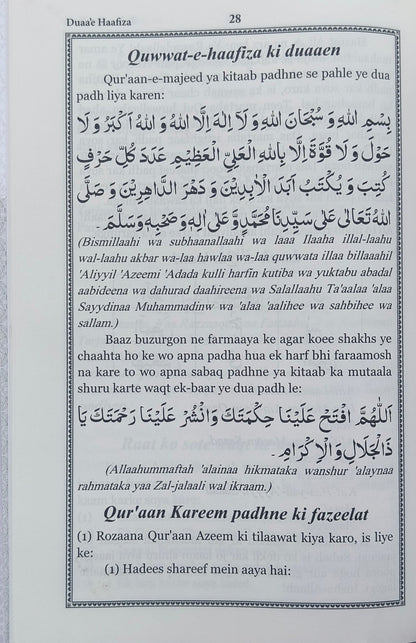 Duaa'e Haafiza
28
Quwwat-e-haafiza ki duaaen
Qur'aan-e-majeed ya kitaab padhne se pahle ye dua
padh liya karen:
بِسْمِ اللهِ وَ سُبْحَانَ اللهِ وَ لَا اِلٰهَ اِلَّا اللهُ وَ اللهُ اَكْبَرُ وَ لَا
حَوْلَ وَ لَا قُوَّةَ اِلَّا بِاللهِ الْعَلِيِّ الْعَظِيْمِ عَدَدَ كُلِّ حَرْفٍ
كُتِبَ وَ يُكْتَبُ اَبَدَ الْاٰبِدِيْنَ وَ دَهْرَ الدَّاهِرِيْنَ وَ صَلَّى
اللهُ تَعَالٰى عَلٰى سَيِّدِنَا مُحَمَّدٍ وَّ عَلٰى اٰلِهٖ وَ صَحْبِهٖ وَ سَلَّمَ۔
(Bismillaahi wa subhaanallaahi wa laaa Ilaaha illal-laahu
wal-laahu akbar wa-laa hawlaa wa-laa quwwata illaa billaaahil
'Aliyyil 'Azeemi 'Adada kulli harfin kutiba wa yuktabu abadal
aabideena wa dahurad daahireena wa Salallaahu Ta'aalaa 'alaa
Sayydinaa Muhammadinw wa 'alaa 'aalihee wa sahbihee wa
sallam.)
Baaz buzurgon ne farmaaya ke agar koee shakhs ye
chaahta ho ke wo apna padha hua ek harf bhi faraamosh
na kare to wo apna sabaq padhne ya kitaab ka mutaala
shuru karte waqt ek-baar ye dua padh le:
اَللّٰهُمَّ افْتَحْ عَلَيْنَا حِكْمَتَكَ وَ انْشُرْ عَلَيْنَا رَحْمَتَكَ يَا
ذَا الْجَلَالِ وَ الْاِكْرَامِ۔
(Allaahummaftah 'alainaa hikmataka wanshur 'alaynaa
rahmataka yaa Zal-jalaali wal ikraam.)
Qur'aan Kareem padhne ki fazeelat
(1) Rozaana Qur'aan Azeem ki tilaawat kiya karo, is liye
ke:
(1) Hadees shareef mein aaya hai: